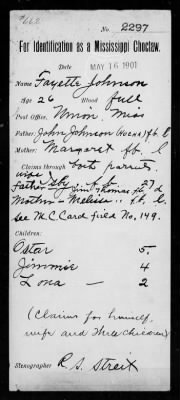 #668
No. 2297
For Identification as a Mississippi Choctaw.
Date MAY 16 1901
Name Fayette Johnson
Age 26 Blood full
Post Office, Union, Miss
Father, John Johnson (Hucha) f l
Mother: Margaret ft. l
Claims through both parents
wife Isby f. b. 27
Father Jim Thomas ft d
Mother - Melisa .. ft. l.
see M C Card field No. 149.
Children:
Ostar 5.
Jimmie 4
Lona - 2
(Claims for himself,
wife and three children)
Stenographer R. S. Streit